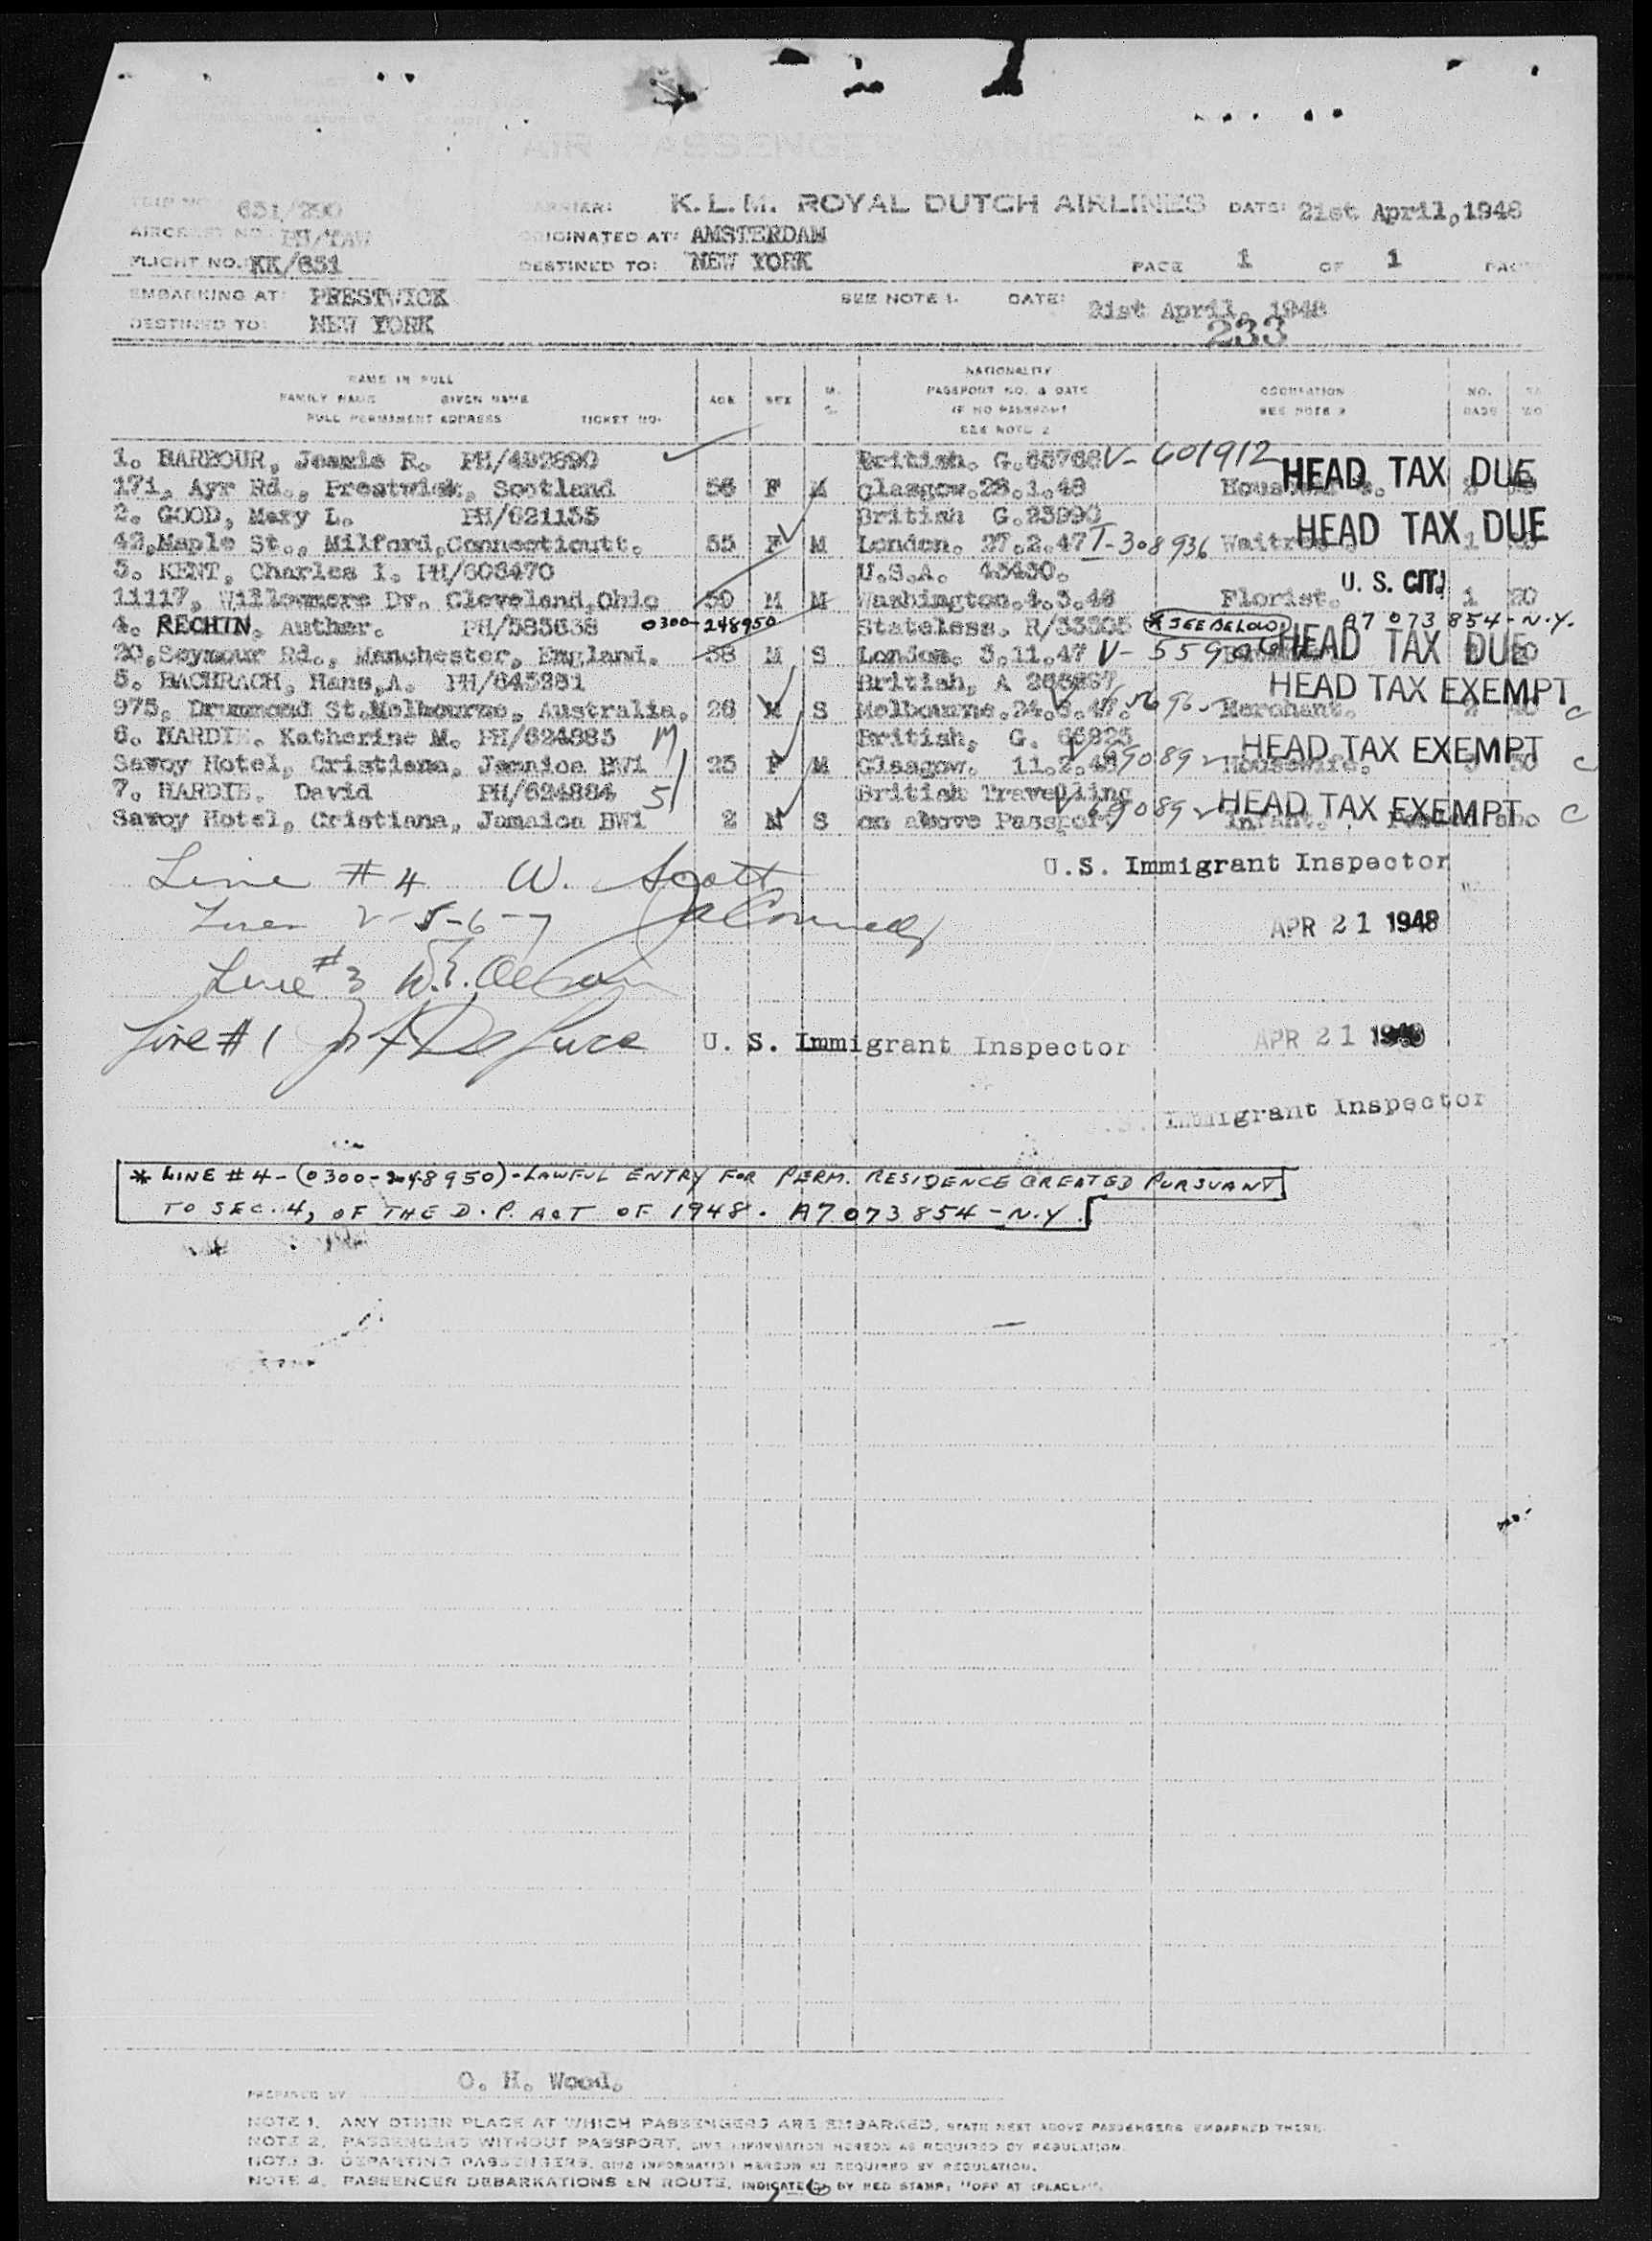 AIR PASSENGER MANIFEST
TRIP NO. 651/290 CARRIER: K.L.M. ROYAL DUTCH AIRLINES DATE: 21st April, 1948
AIRCRAFT NO. PH/TAW ORIGINATED AT: AMSTERDAM
FLIGHT NO. KK/651 DESTINED TO: NEW YORK PAGE 1 OF 1
EMBARKING AT: PRESTWICK SEE NOTE 1. DATE: 21st April, 1948
DESTINED TO: NEW YORK 233
NAME IN FULL NATIONALITY
FAMILY NAME GIVEN NAME AGE SEX M. PASSPORT NO. & DATE OCCUPATION NO.
FULL PERMANENT ADDRESS TICKET NO. S. IF NO PASSPORT SEE NOTE 3 BAGS
SEE NOTE 2
1. BARBOUR, Jeamie R. PH/492890 British. G.65768 V-601912 HEAD TAX DUE
171, Ayr Rd., Prestwick, Scotland 56 F M Glasgow.28.1.48
2. GOOD, Mary L. PH/621135 British G.23990 HEAD TAX DUE
42,Maple St., Milford,Connecticutt. 55 F M London. 27.2.47 T-308936 Waitress 1
3. KENT, Charles I. PH/608470 U.S.A. 43430. U. S. CIT.
11117, Willowmere Dr. Cleveland,Ohio 50 M M Washington.4.3.48 Florist. 1 20
4. RECHTN. Auther. PH/583638 0300-248950 Stateless. R/33305 * SEE BELOW A7 073 854-N.Y.
20,Seymour Rd., Manchester, England. 38 M S London. 3.11.47 V-55906 HEAD TAX DUE
5. BACHRACH, Hans,A. PH/645281 British, A HEAD TAX EXEMPT
975, Drummond St.Melbourne, Australia. 26 M S Melbourne.24. .47. Merchant. C
6. HARDIE. Katherine M. PH/624885 M British, G. 66825 HEAD TAX EXEMPT
Savoy Hotel, Cristiana, Jamaica BWI 25 F M Glasgow. 11.2.48 V 69089 Housewife. C
7. HARDIE. David PH/624884 5 British Travelling HEAD TAX EXEMPT
Savoy Hotel, Cristiana, Jamaica BWI 2 M S on above Passport V 69089 Infant. C
Line # 4 W. Scott U.S. Immigrant Inspector
Lines 2-5-6-7 APR 21 1948
Line #3
Line # 1 U. S. Immigrant Inspector APR 21 1948
U.S. Immigrant Inspector
* LINE # 4 - (0300-248950) - LAWFUL ENTRY FOR PERM. RESIDENCE CREATED PURSUANT
TO SEC. 4, OF THE D.P. ACT OF 1948. A7 073 854 - N.Y.
PREPARED BY O. H. Wood.
NOTE 1. ANY OTHER PLACE AT WHICH PASSENGERS ARE EMBARKED, STATE NEXT ABOVE PASSENGERS EMBARKED THERE.
NOTE 2. PASSENGERS WITHOUT PASSPORT, GIVE INFORMATION HEREON AS REQUIRED BY REGULATION.
NOTE 3. DEPARTING PASSENGERS, GIVE INFORMATION HEREON AS REQUIRED BY REGULATION.
NOTE 4. PASSENGER DEBARKATIONS EN ROUTE, INDICATE BY RED STAMP: "OFF AT (PLACE)".